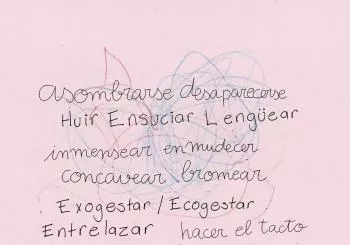 asombrarse desaparecerse
Huir Ensuciar Lengüear
inmensear enmudecer
concavear bromear
Exogestar / Ecogestar
Entrelazar hacer el tacto